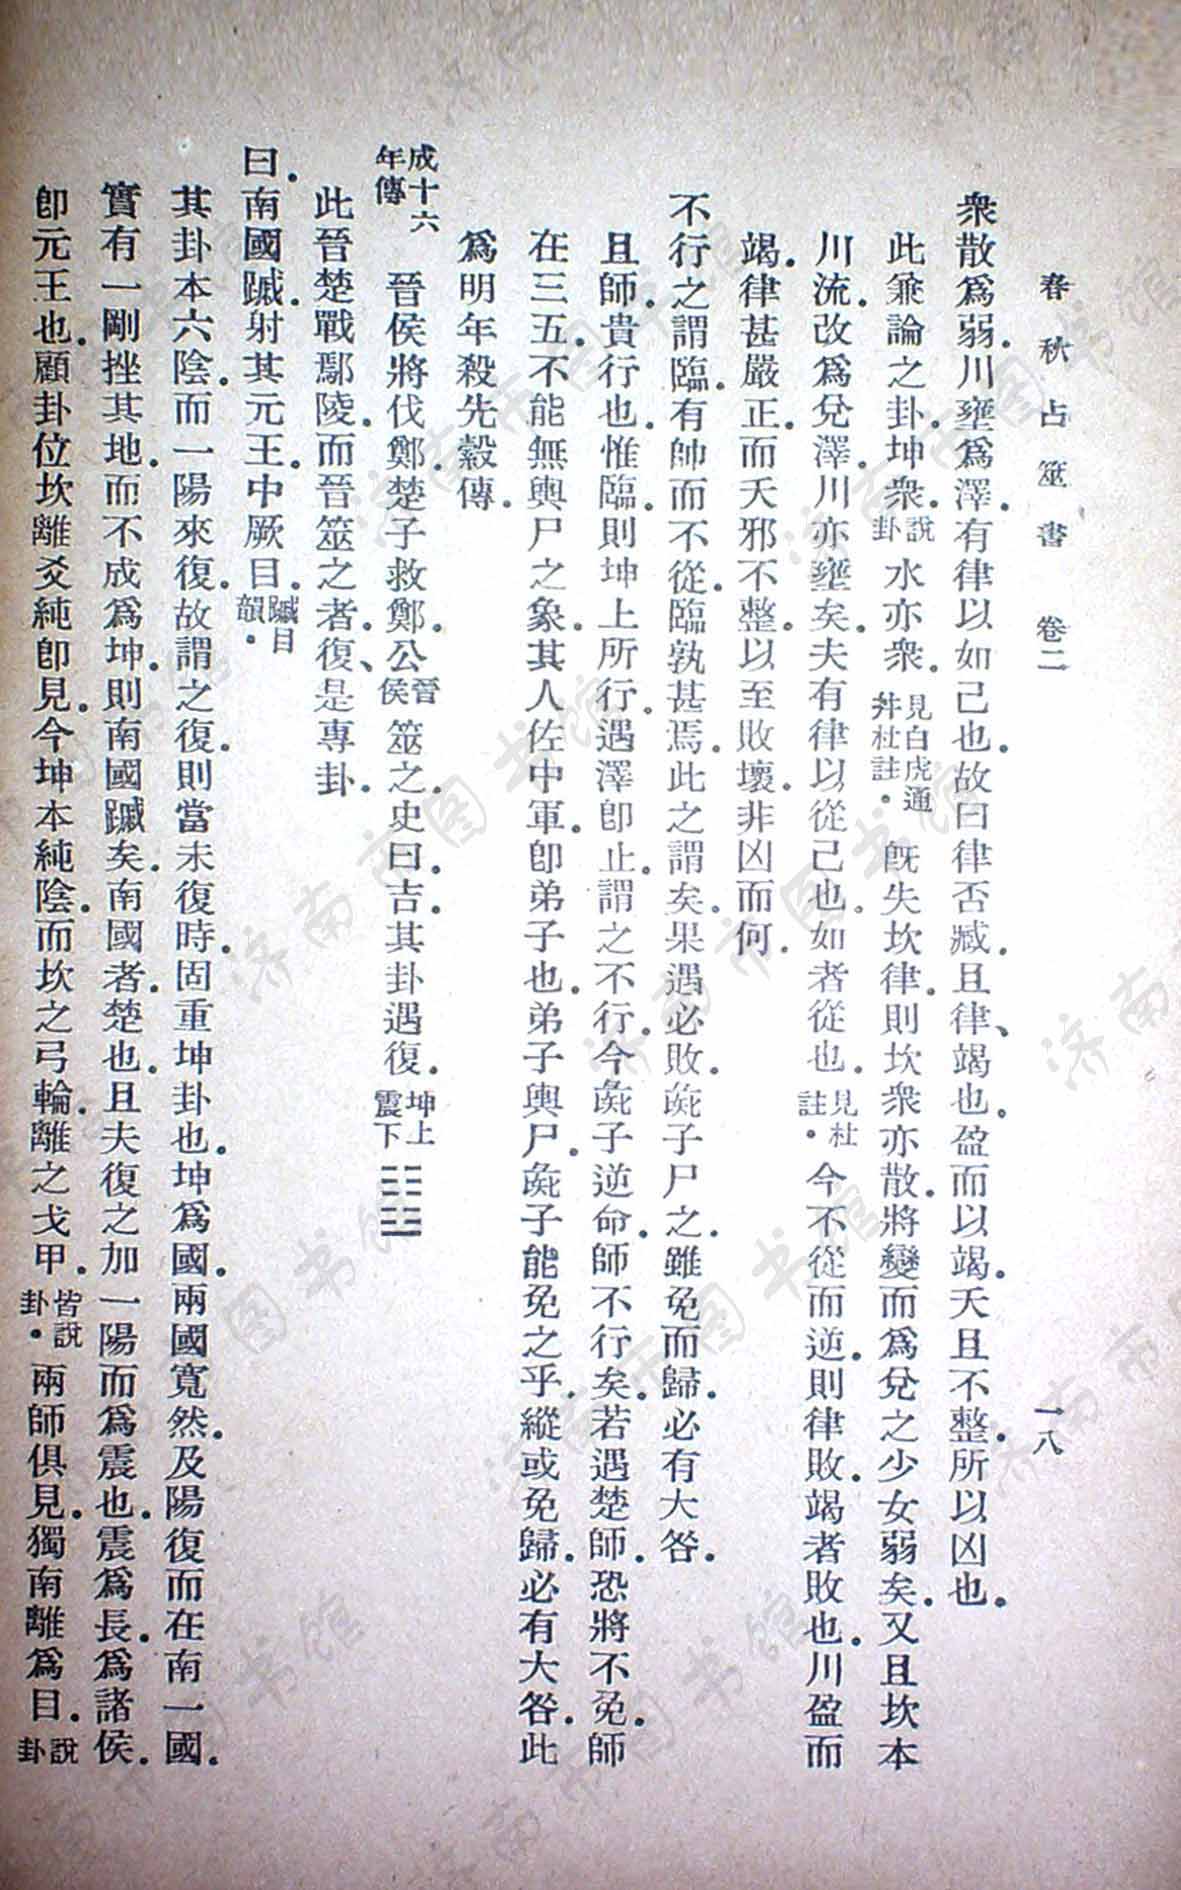 春秋占筮書　卷二　一八
衆散爲弱．川壅爲澤．有律以如己也．故曰律否臧．且律、竭也．盈而以竭．夭且不整．所以凶也．
此兼論之卦．坤衆．說卦水亦衆．見白虎通幷杜註．旣失坎律．則坎衆亦散．將變而爲兌之少女弱矣．又且坎本
川流．改爲兌澤．川亦壅矣．夫有律以從己也．如者從也．見杜註．今不從而逆．則律敗．竭者敗也．川盈而
竭．律甚嚴正．而夭邪不整．以至敗壞．非凶而何．
不行之謂臨．有帥而不從．臨孰甚焉．此之謂矣．果遇必敗．彘子尸之．雖免而歸．必有大咎．
且師．貴行也．惟臨．則坤上所行．遇澤卽止．謂之不行．今彘子逆命．師不行矣．若遇楚師．恐將不免．師
在三五．不能無輿尸之象．其人佐中軍．卽弟子也．弟子輿尸．彘子能免之乎．縱或免歸．必有大咎．此
爲明年殺先縠傳．
成十六年傳　晉侯將伐鄭．楚子救鄭．公晉侯筮之．史曰．吉．其卦遇復．坤上震下䷗
此晉楚戰鄢陵．而晉筮之者．復、是專卦．
曰．南國䠞．射其元王．中厥目．䠞目韻．
其卦本六陰．而一陽來復．故謂之復．則當未復時．固重坤卦也．坤爲國．兩國寬然．及陽復而在南一國．
實有一剛挫其地．而不成爲坤．則南國䠞矣．南國者．楚也．且夫復之加一陽而爲震也．震爲長．爲諸侯．
卽元王也．顧卦位坎離爻純卽見．今坤本純陰．而坎之弓輪．離之戈甲．皆說卦．兩師俱見．獨南離爲目．說卦